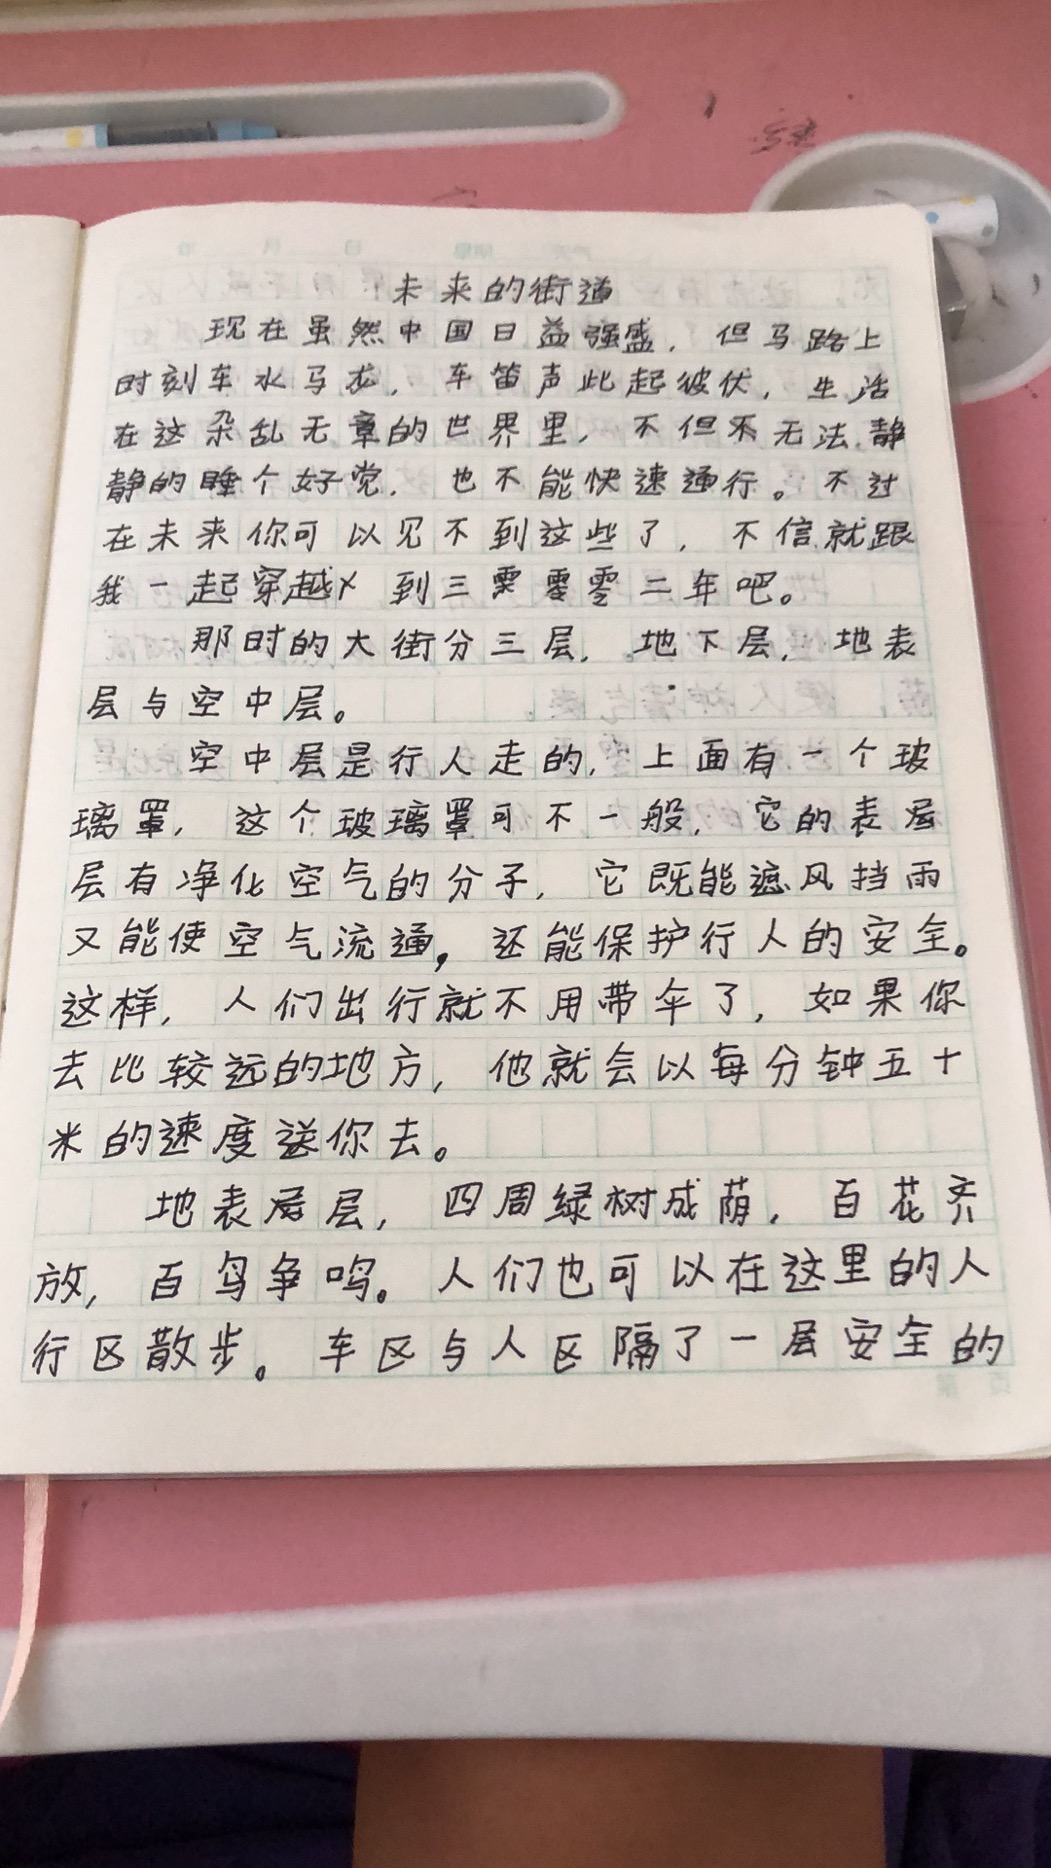 未来的街道
现在虽然中国日益强盛，但马路上
时刻车水马龙，车笛声此起彼伏，生活
在这杂乱无章的世界里，不但不无法静
静的睡个好觉，也不能快速通行。不过
在未来你可以见不到这些了，不信就跟
我一起穿越到三零零零二年吧。
那时的大街分三层，地下层，地表
层与空中层。
空中层是行人走的，上面有一个玻
璃罩，这个玻璃罩可不一般，它的表层
层有净化空气的分子，它既能遮风挡雨
又能使空气流通，还能保护行人的安全。
这样，人们出行就不用带伞了，如果你
去比较远的地方，他就会以每分钟五十
米的速度送你去。
地表层层，四周绿树成荫，百花齐
放，百鸟争鸣。人们也可以在这里的人
行区散步。车区与人区隔了一层安全的